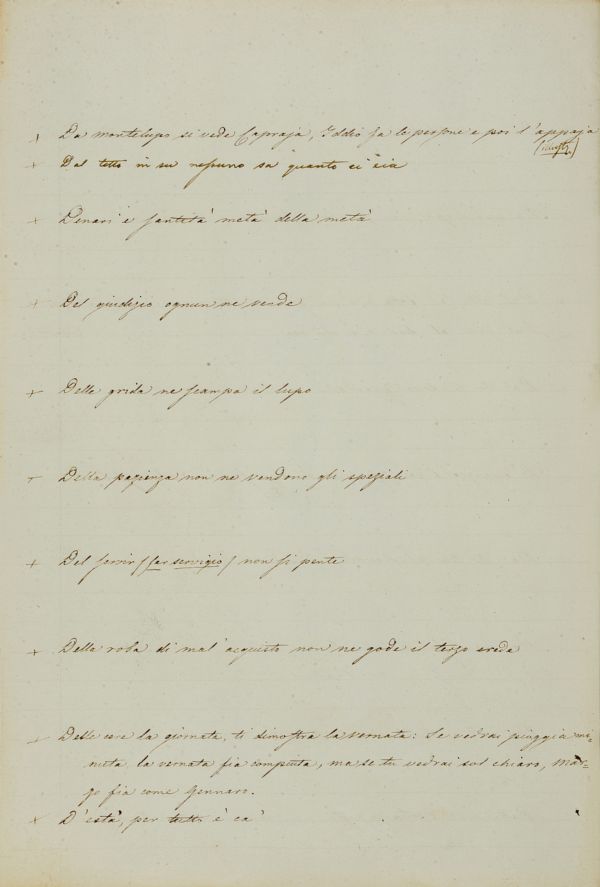 + Da montelupo si vede Capraja, Iddio fa le persone e poi l'appaja
+ Dal tetto in su nessuno sa quanto ci sia
+ Denari e santità metà della metà
+ Del giudizio ognun ne vende
+ Delle grida ne scampa il lupo
+ Della pazienza non ne vendono gli speziali
+ Del servir (far servigio) non si pente
+ Della roba di mal' acquisto non ne gode il terzo erede
+ Delle cere la giornata, ti dimostra la vernata: Se vedrai pioggia mi=
nuta, la vernata fia compiuta, ma se tu vedrai sol chiaro, Mar=
zo fia come Gennaro.
+ D'està, per tutto è ca'